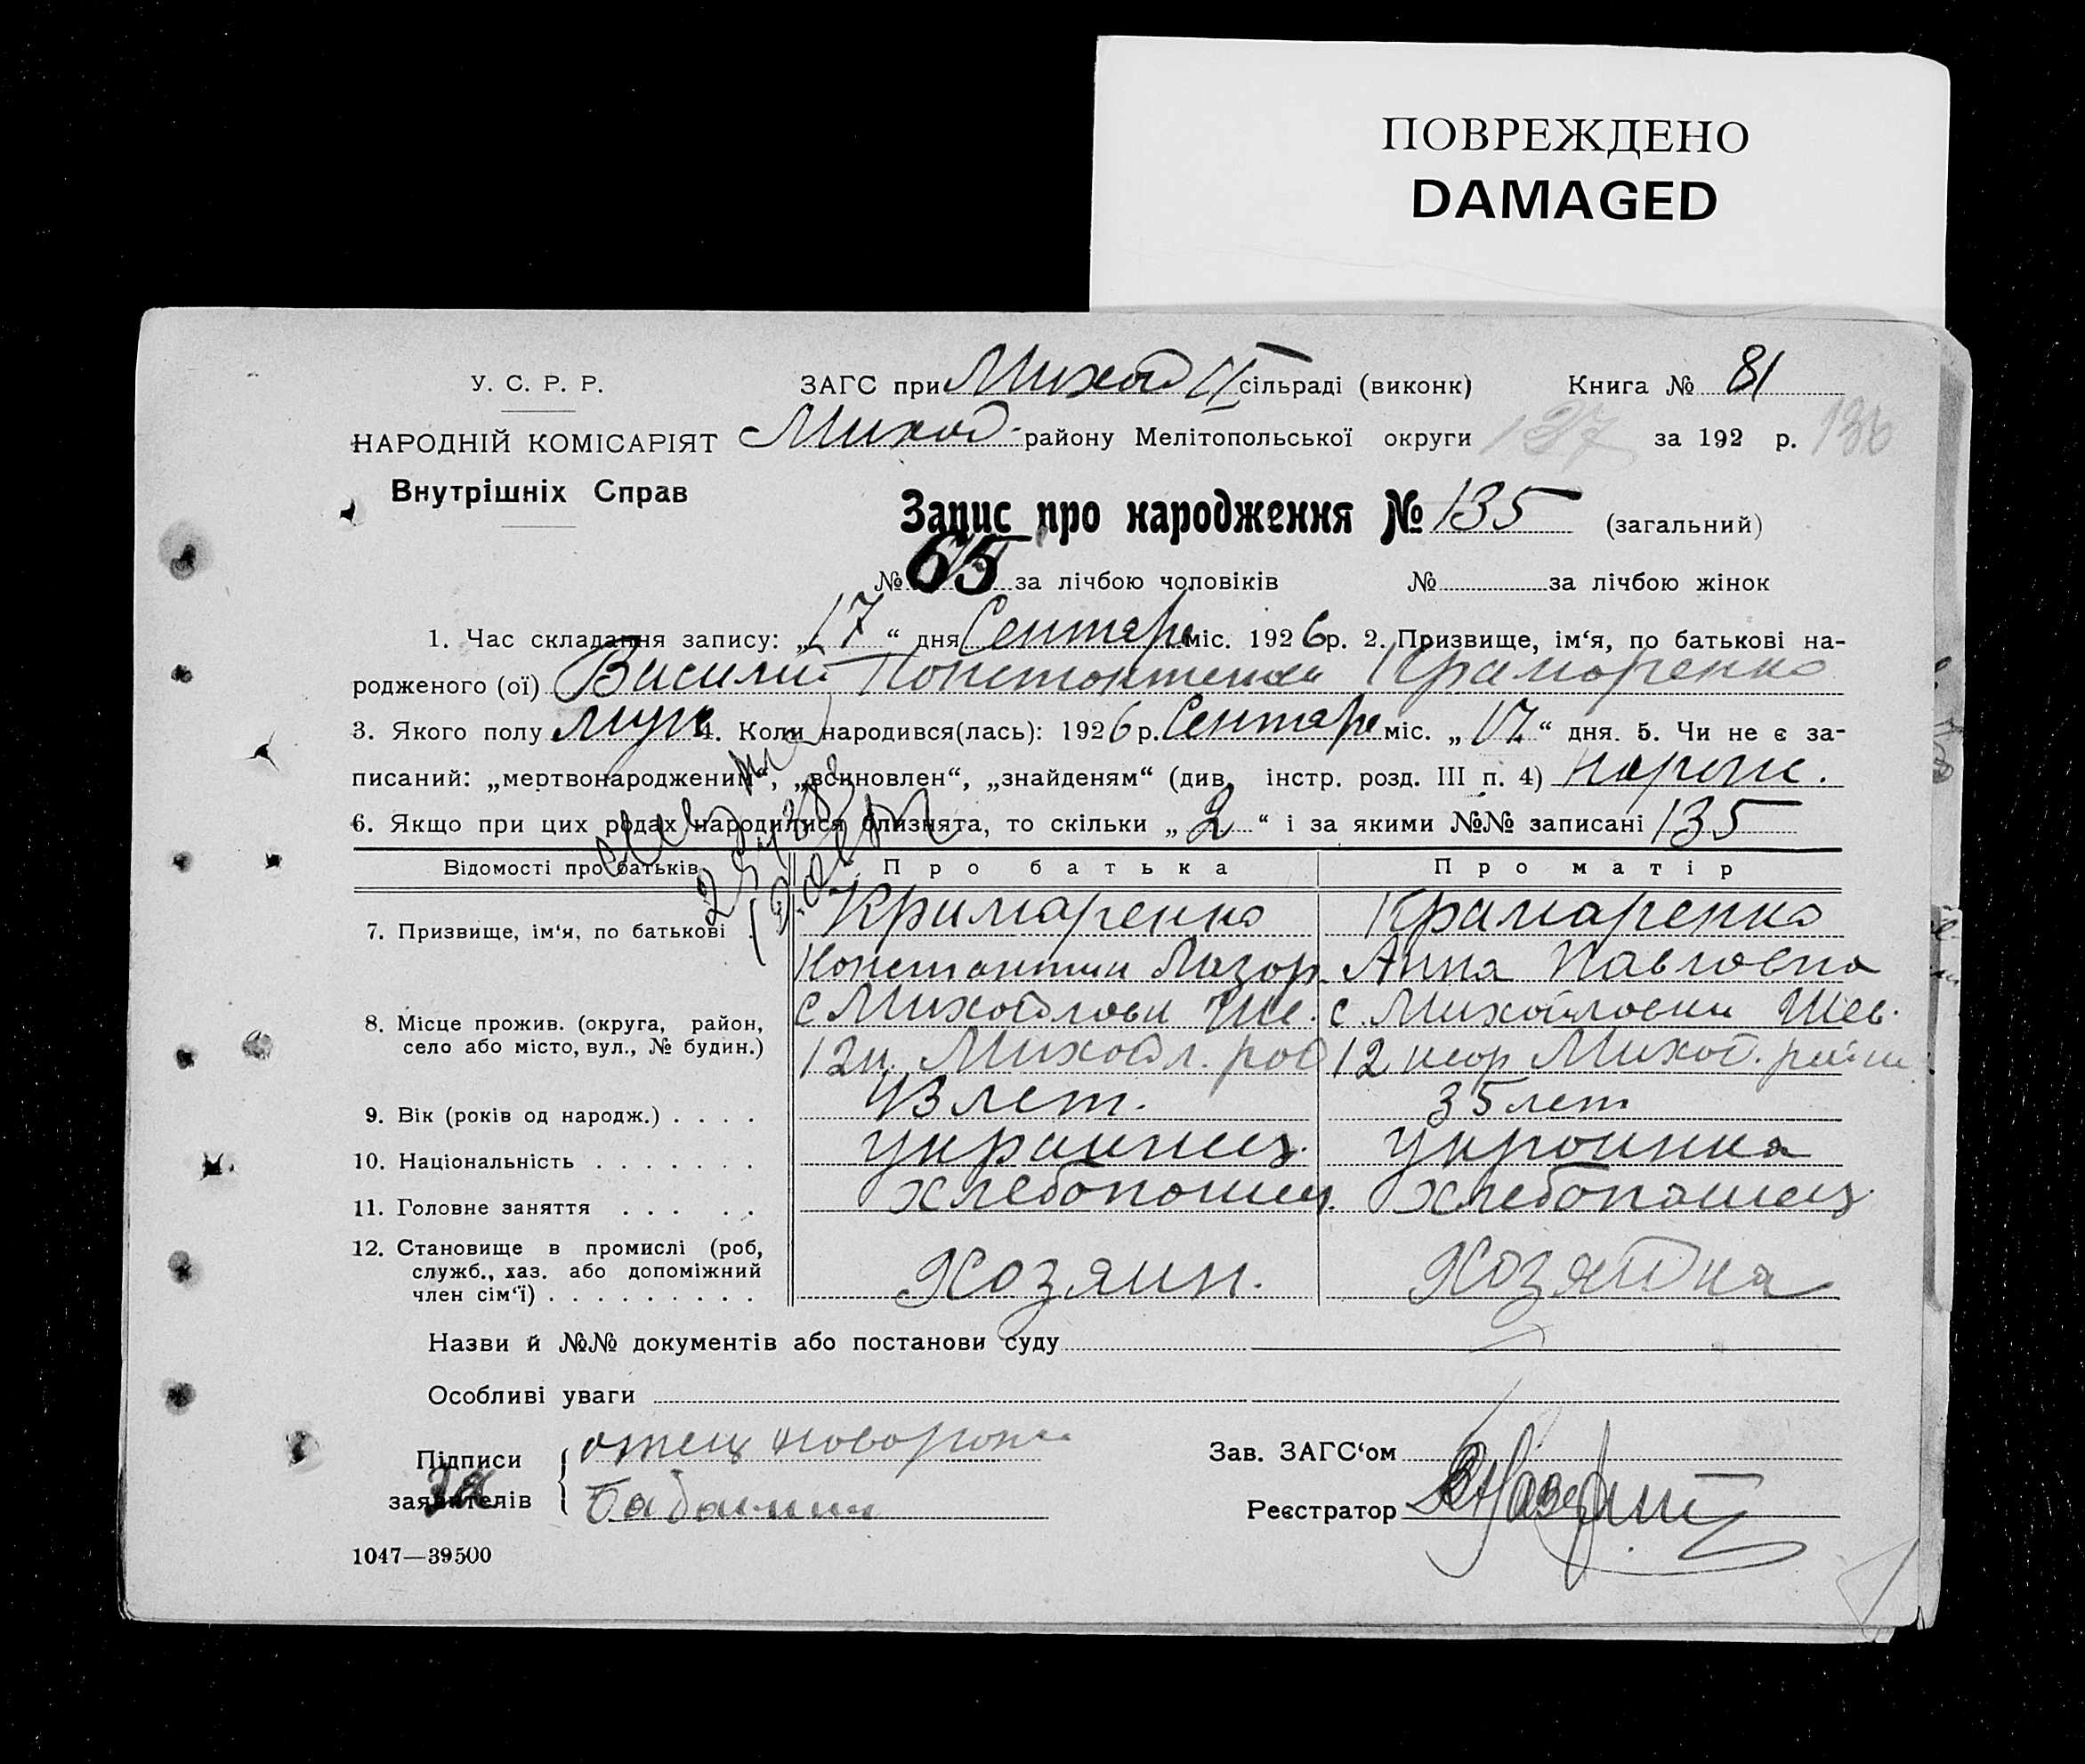 ПОВРЕЖДЕНО
DAMAGED
У. С. Р. Р.
ЗАГС при Михай II сільраді (виконк) Книга № 81
НАРОДНІЙ КОМІСАРІЯТ Михай. району Мелітопольської округи 137 за 192 р. 136
Внутрішніх Справ
Запис про народження № 135 (загальний)
№ 65 за лічбою чоловіків № за лічбою жінок
1. Час складання запису: „17“ дня Сентяр міс. 1926 р. 2. Призвище, ім‘я, по батькові на-
родженого (ої) Василий Крамаренко
3. Якого полу муж 4. Коли народився(лась): 1926 р. Сентяр міс. „17“ дня. 5. Чи не є за-
писаний: „мертвонароджений“, „всиновлен“, „знайденям“ (див. інстр. розд. III п. 4)
6. Якщо при цих родах народилися близнята, то скільки „2“ і за якими №№ записані 135
Відомості про батьків Про батька Про матір
7. Призвище, ім‘я, по батькові . Крамаренко Крамаренко
Константин Лазор. Анна Павловна
8. Місце прожив. (округа, район, с Михайловки Ше. с. Михайловки Шев.
село або місто, вул., № будин.) 12 Михайл. рай 12 Михай. район
9. Вік (років од народж.) . . . . 43 лет. 35 лет
10. Національність . . . . . . . украинец. украинка
11. Головне заняття . . . . . хлебопашец. хлебопашец.
12. Становище в промислі (роб, Хозяин. Хозяйка
служб., хаз. або допоміжний
член сім‘ї) . . . . . . . . .
Назви й №№ документів або постанови суду
Особливі уваги
Підписи отец новорожд
Зав. ЗАГС‘ом
заявителів За
Реєстратор
1047—39500